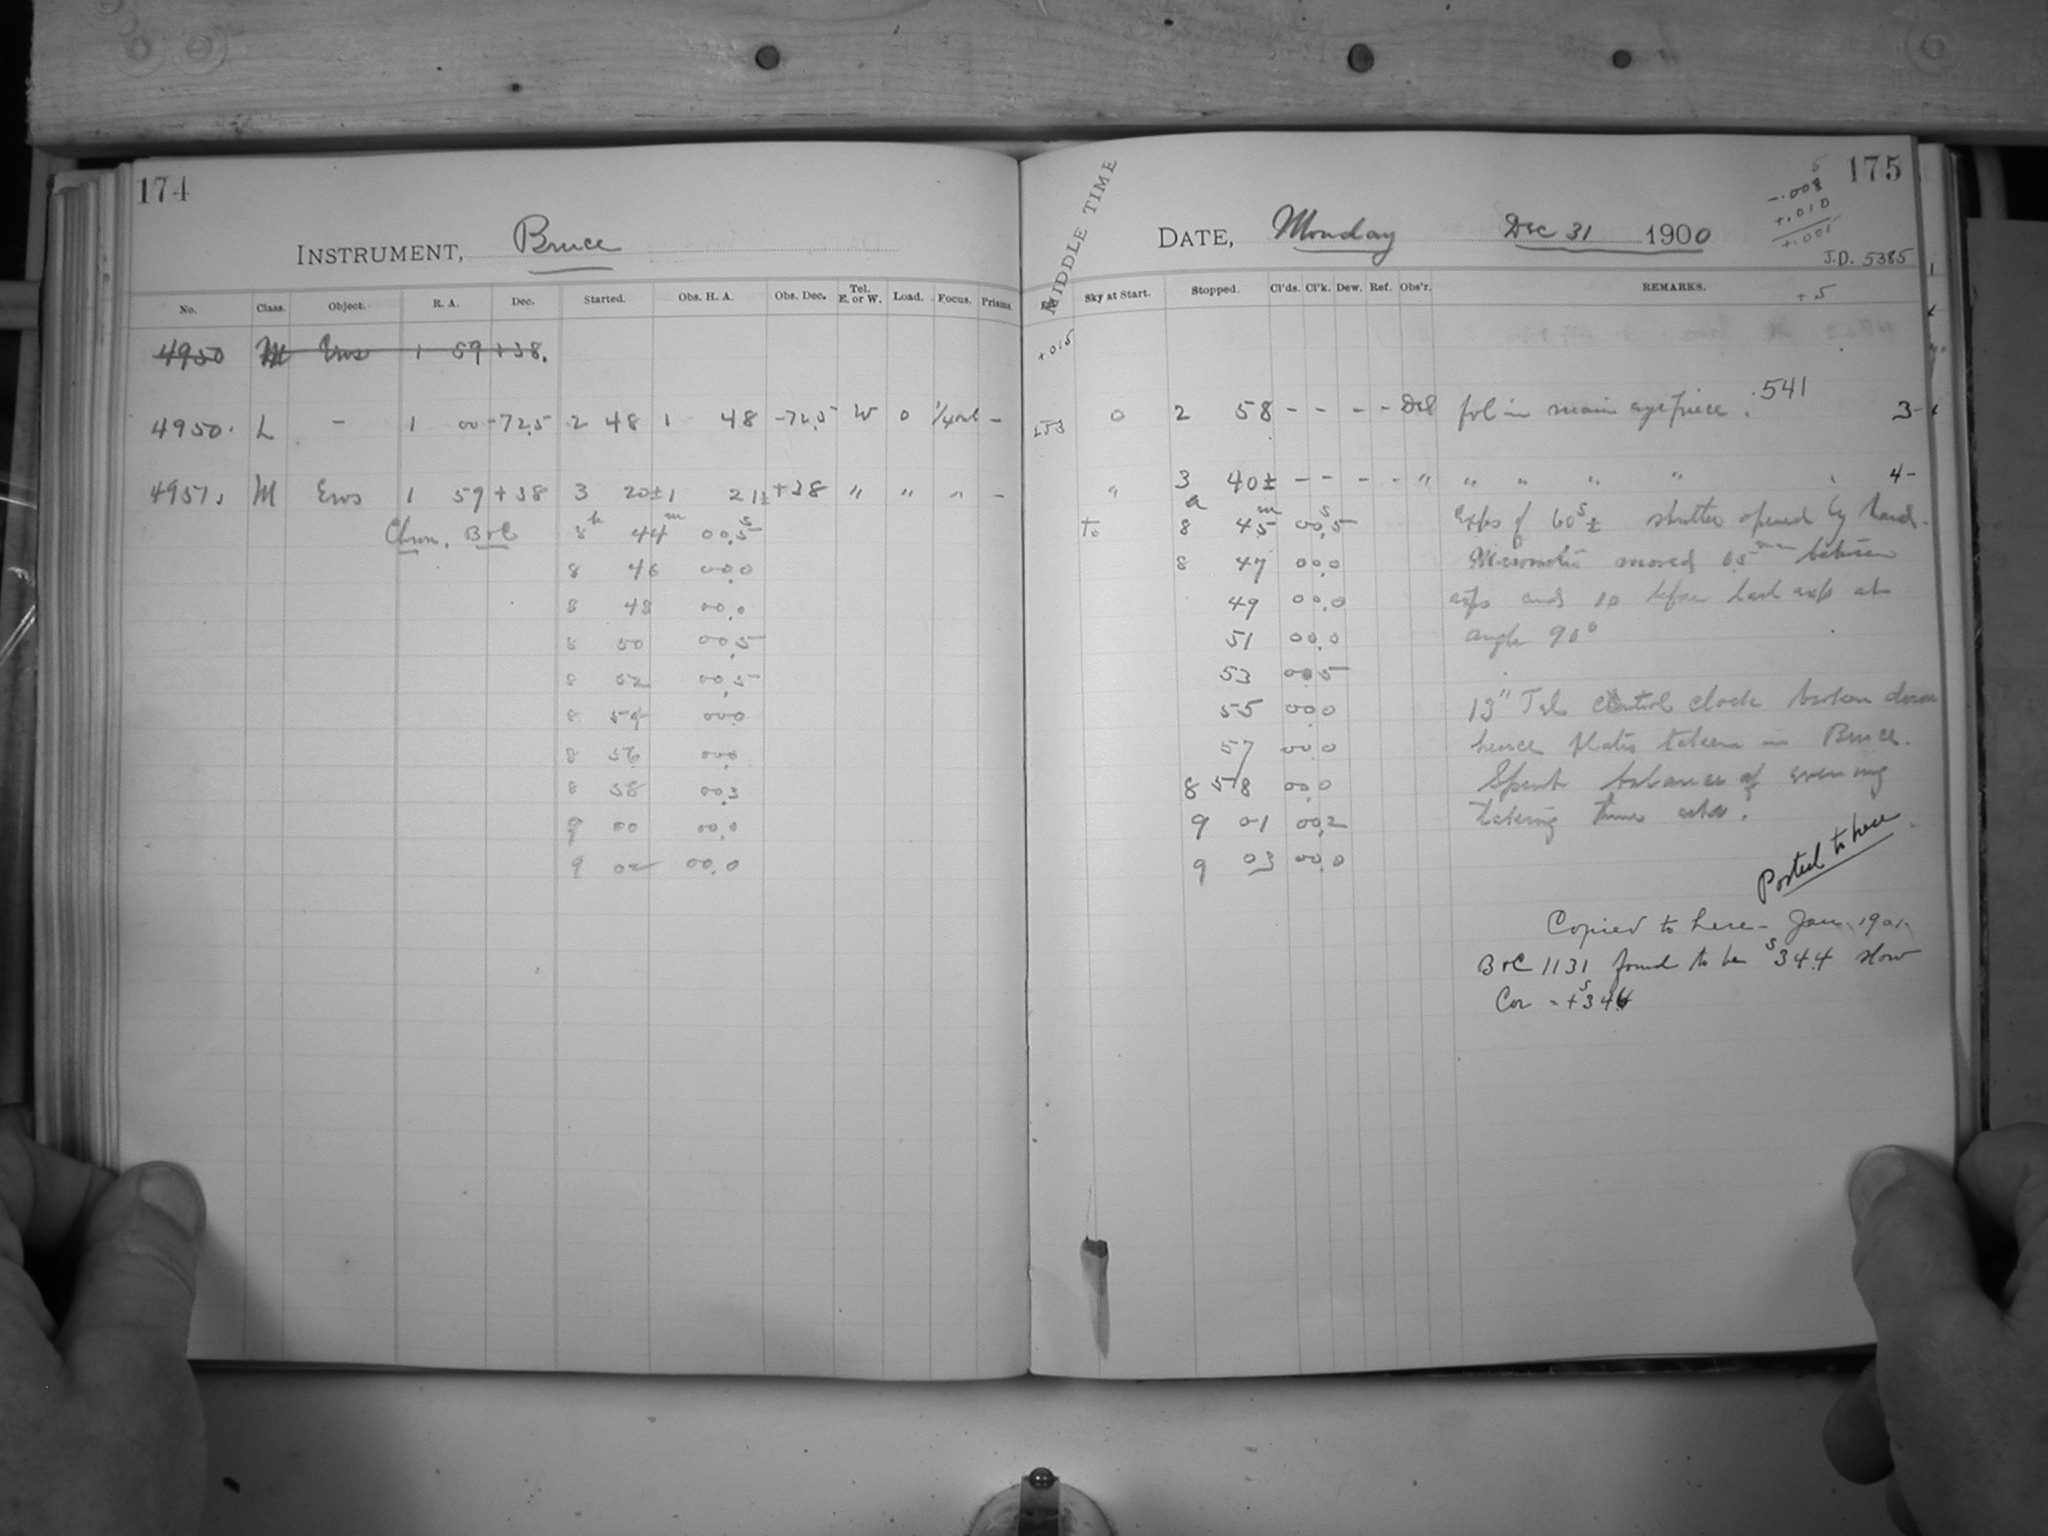 174
INSTRUMENT, Bruce
No. Class. Object. R. A. Dec. Started. Obs. H. A. Obs. Dec. Tel. E. or W. Load. Focus. Prisms.
4950 M Eros 1 59 +38.
4950. L - 1 00 -72.5 2 48 1 48 -72.5 W 0 1/4 out -
4951. M Eros 1 59 +38 3 20± 1 21± +38 " " " -
Chron. B & C 8h 44m 00.5s
8 46 00.0
8 48 00.0
8 50 00.5
8 52 00.5
8 54 00.0
8 56 00.0
8 58 00.3
9 00 00.0
9 02 00.0
175
MIDDLE TIME
DATE, Monday Dec 31 1900
5
-.008
+.010
+.001
J.D. 5385
+5
Sky at Start. Stopped. Cl'ds. Cl'k. Dew. Ref. Obs'r. REMARKS.
+015
253 0 2 58 - - - - fol in main eyepiece. 541 3-
" 3 40± - - - - " " " " " 4-
To 8 45m 00.5s Exps of 60s± shutter opened by hand.
8 47 00.0 moved between
49 00.0 exps and before last exp at
51 00.0 angle 90°
53 00.5
55 00.0 13" Tel control clock broken down
57 00.0 hence plates taken in Bruce.
8 58 00.0 Spent balance of evening
9 01 00.2 taking time
9 03 00.0
Posted to here
Copied to here - Jan. 1901.
B & C 1131 found to be s344 slow
Cor = +s344